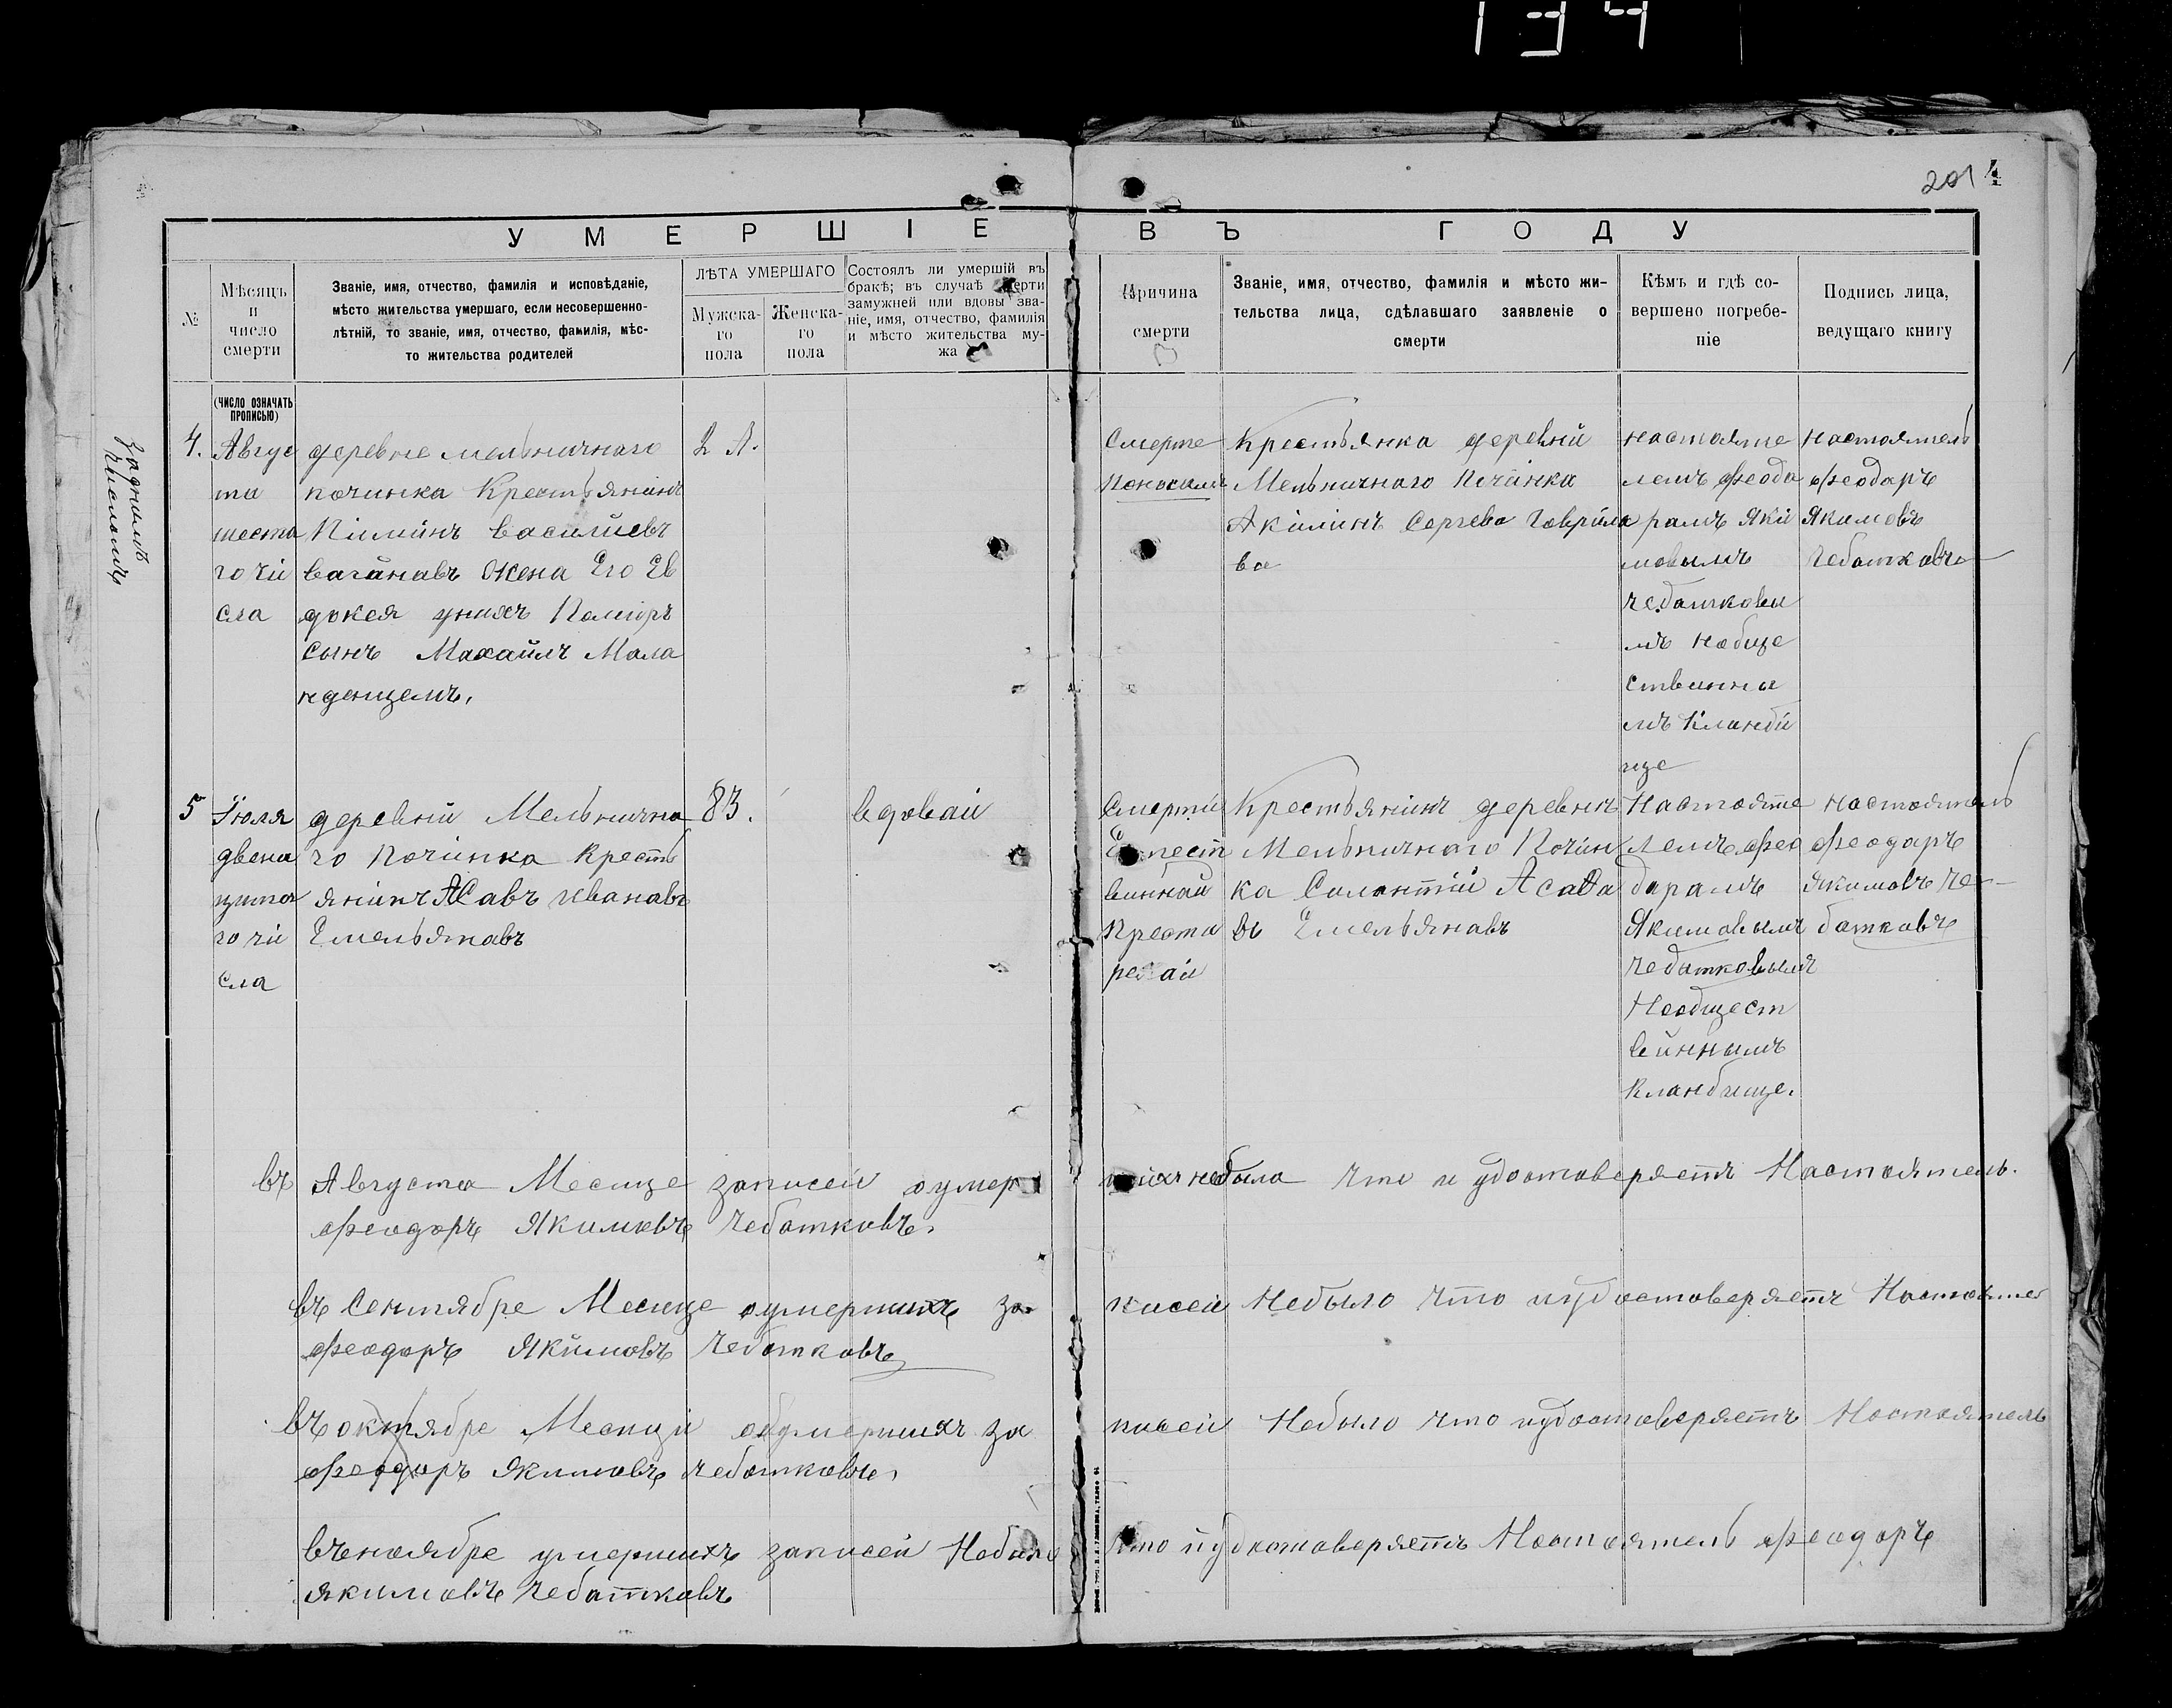 134
201 4
УМЕРШІЕ ВЪ ГОДУ
№
Мѣсяцъ
и
число
смерти
Званіе, имя, отчество, фамилія и исповѣданіе,
мѣсто жительства умершаго, если несовершенно-
лѣтній, то званіе, имя, отчество, фамилія, мѣс-
то жительства родителей
ЛѢТА УМЕРШАГО
Мужска-
го
пола
Женска-
го
пола
Состоялъ ли умершій въ
бракѣ; въ случаѣ смерти
замужней или вдовы зва-
ніе, имя, отчество, фамилія
и мѣсто жительства му-
жа
Причина
смерти
Званіе, имя, отчество, фамилія и мѣсто жи-
тельства лица, сдѣлавшаго заявленіе о
смерти
Кѣмъ и гдѣ со-
вершено погребе-
ніе
Подпись лица,
ведущаго книгу
(ЧИСЛО ОЗНАЧАТЬ
ПРОПИСЬЮ)
заднимъ
числомъ
4.
Авгус
та
шеста
го чи
сла
деревне мельничнаго
починка Крестьянинъ
Василиевъ
ваганавъ Жена Его Ев
докея унихъ
Сынъ Махаилъ Мла
нденцемъ.
2 Л.
Смерте
Поносамъ
Крестьянка деревни
Мельничнаго Починка
Акилинъ Сергева Гаврила
ва
настояте
лемъ феодо
рамъ Яки
мовымъ
чебатковы
мъ наобще
ственны
мъ Кланби
ще
настоятель
феодаръ
Якимовъ
Чебатковъ
5
Іюля
двена
цата
го чи
сла
деревни Мельнична
го Починка Кресть
янинъ АСавъ Ивановъ
Емельянавъ
83.
вдоваи
Смерти
Крестьянинъ деревнъ
Мельничнаго Почин
ка Силантий Асава
въ Емельянавъ
Настояте
лемъ фео
дарамъ
Якимовымъ
чебатковымъ
Наобщест
вйннымъ
Кланбище.
настоятель
феодаръ
якимовъ че-
батковъ
въ Августа Месице записей оумер шихъ небыла что и удостоверяетъ Настоятель.
феодоръ Якимовъ Чебатковъ.
въ Сентябре Месице оумершихъ за писей Небыло что иудостоверяетъ Настояте
феодоръ Якимовъ Чебатковъ
въ октябре Месици обумершихъ за писеи Небыло что иудостоверяетъ Настоятель
феодоръ Якимовъ чебатковъ.
въ ноябре умершихъ записеи Небыло Что иудостоверяетъ Настоятель феодоръ
якимовъ чебатковъ